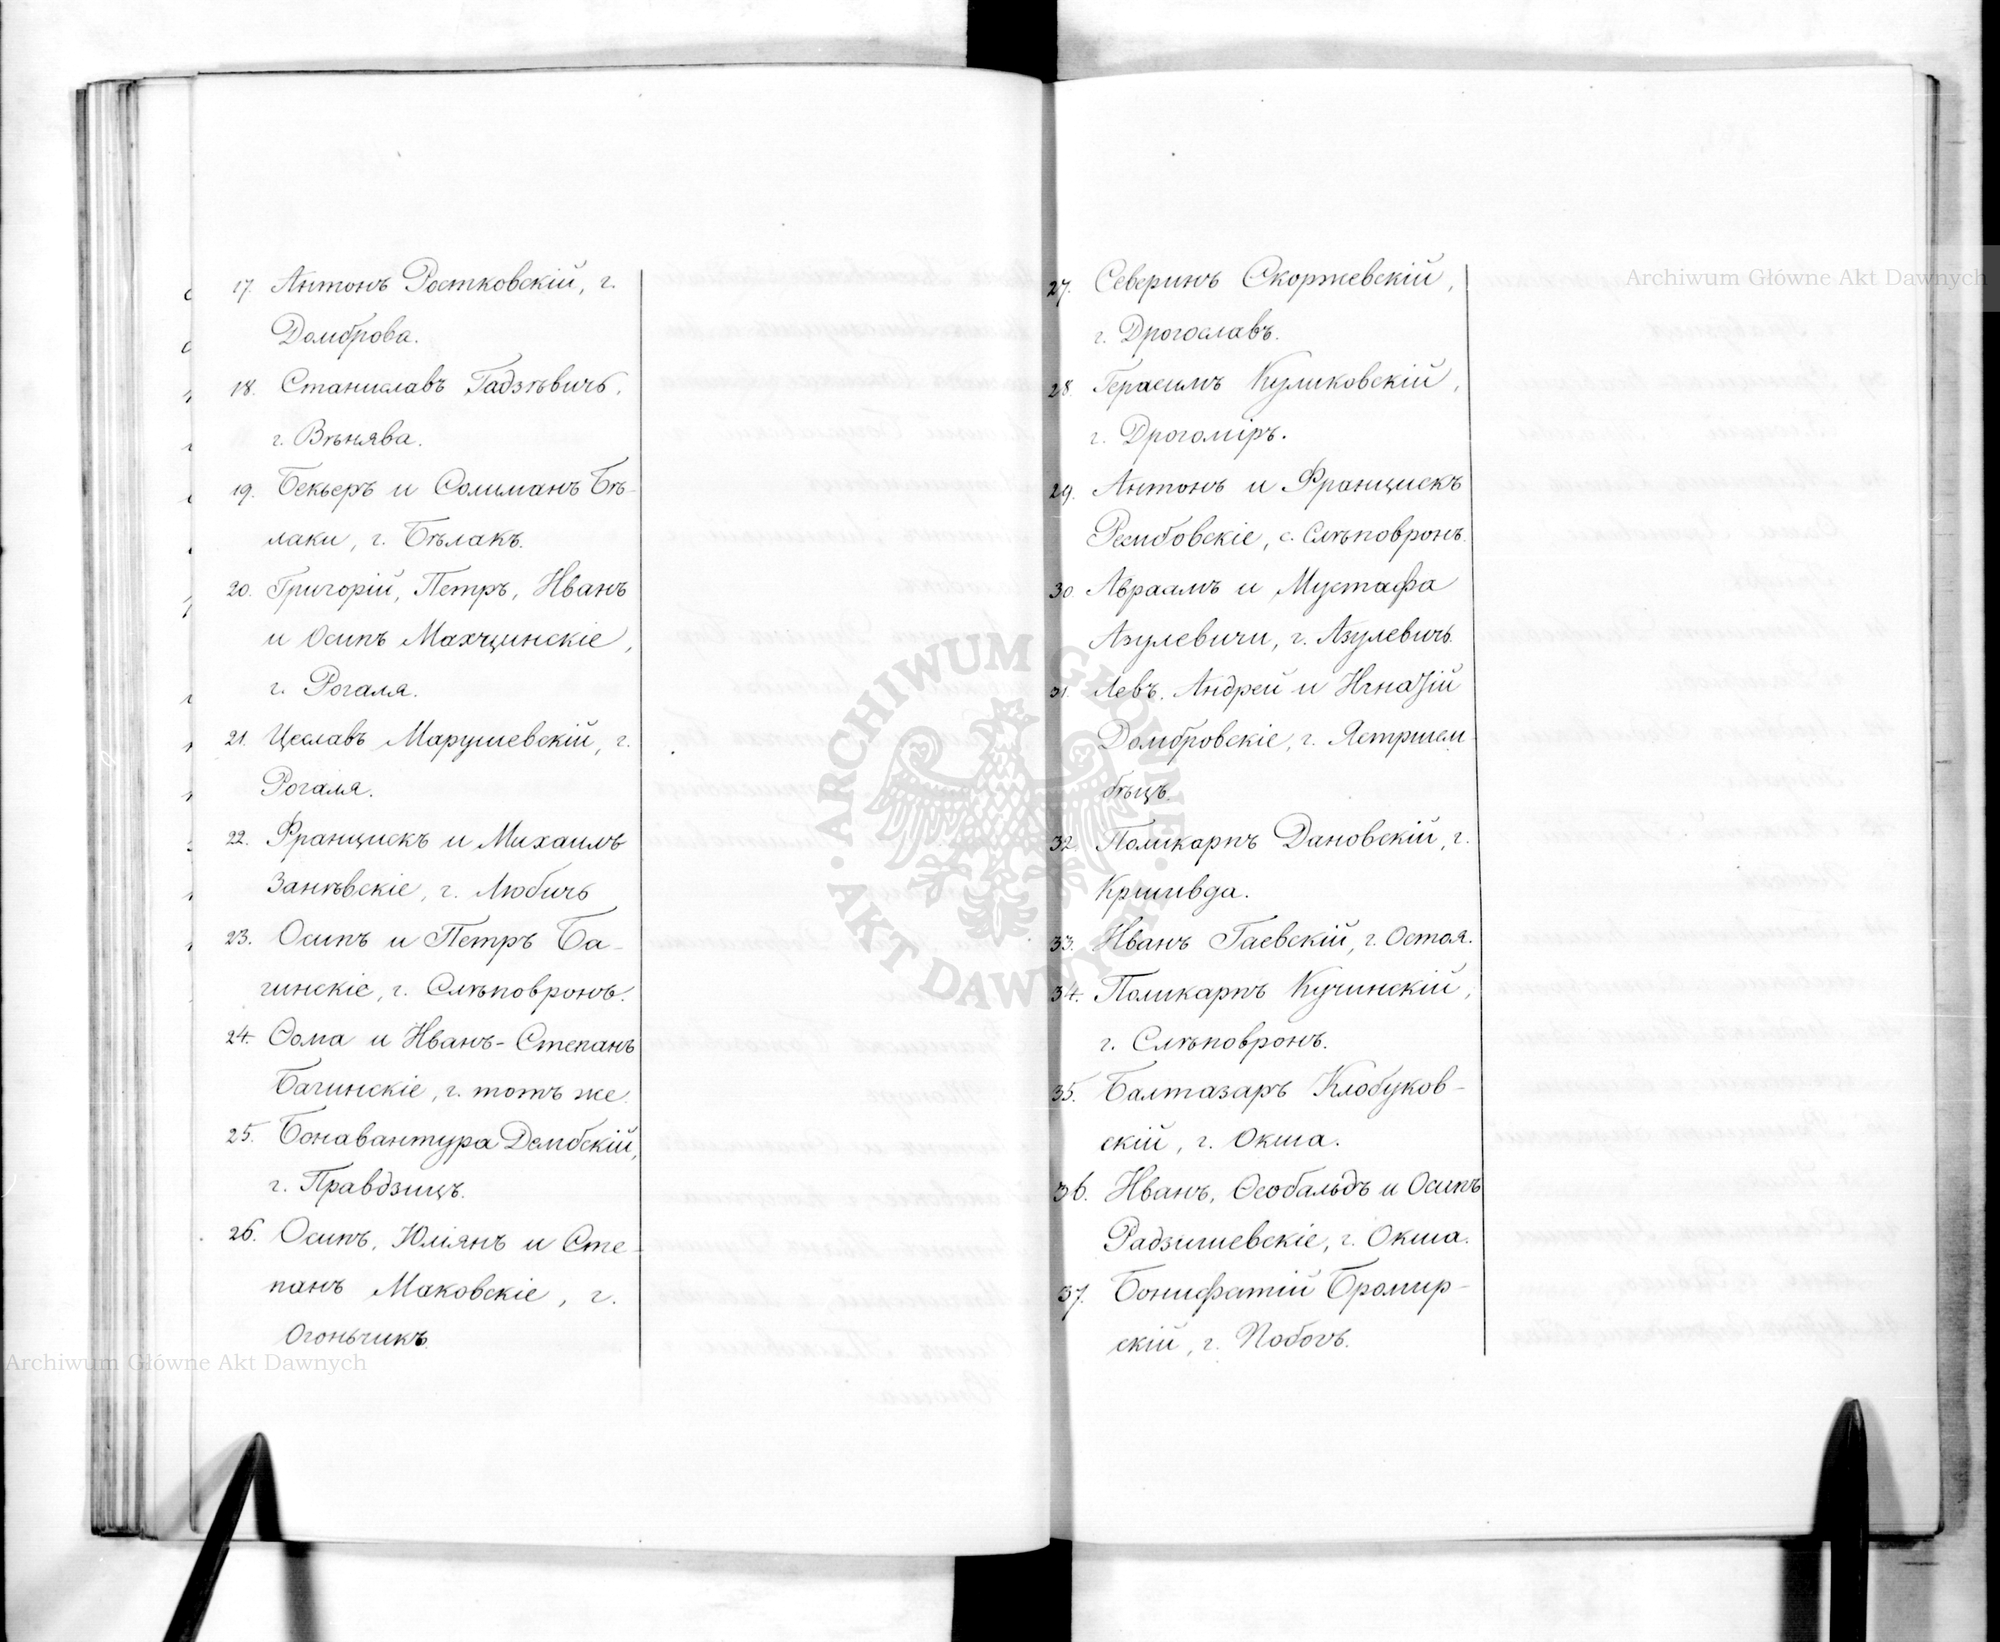 17. Антонъ Ростковскій, г.
Домброва.
18. Станиславъ Гадзѣвичъ,
г. Вѣнява.
19. Бекьеръ и Солиманъ Бѣ-
лаки, г. Бѣлакъ.
20. Григорій, Петръ, Иванъ
и Осипъ Махчинскіе,
г. Рогаля.
21. Цеславъ Марушевскій, г.
Рогаля.
22. Францискъ и Михаилъ
Занѣвскіе, г. Любичъ
23. Осипъ и Петръ Ба-
гинскіе, г. Слѣповронъ.
24. Ѳома и Иванъ-Степанъ
Багинскіе, г. тотъ же.
25. Бонавантура Дембскій,
г. Правдзицъ.
26. Осипъ, Юліянъ и Сте-
панъ Маковскіе, г.
Огоньчикъ.
27. Северинъ Скоржевскій,
г. Дрогославъ.
28. Герасимъ Куликовскій,
г. Дрогоміръ.
29. Антонъ и Францискъ
Рембовскіе, г. Слѣповронъ.
30. Авраамъ и Мустафа
Азулевичи, г. Азулевичъ.
31. Левъ, Андрей и Игнатій
Домбровскіе, г. Ястршем-
бѣцъ.
32. Поликарпъ Дановскій, г.
Кршивда.
33. Иванъ Гаевскій, г. Остоя.
34. Поликарпъ Кучинскій,
г. Слѣповронъ.
35. Балтазаръ Клобуков-
скій, г. Окша.
36. Иванъ, Ѳеобальдъ и Осипъ
Радзишевскіе, г. Окша.
37. Бонифатій Бромир-
скій, г. Побогъ.
Archiwum Główne Akt Dawnych
Archiwum Główne Akt Dawnych
ARCHIWUM GŁÓWNE AKT DAWNYCH